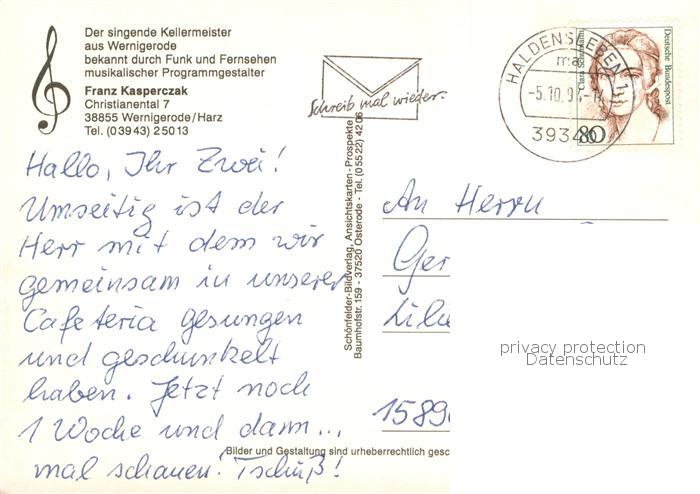 Der singende Kellermeister
aus Wernigerode
bekannt durch Funk und Fernsehen
musikalischer Programmgestalter
Franz Kasperczak
Christianental 7
38855 Wernigerode/Harz
Tel. (0 39 43) 2 50 13
Schreib mal wieder.
HALDENSLEBEN 1
ma
-5.10.94-
3934
Clara Schumann
Deutsche Bundespost
80
Hallo, Ihr Zwei!
Umseitig ist der
Herr mit dem wir
gemeinsam in unserer
Cafeteria gesungen
und geschunkelt
haben. Jetzt noch
1 Woche und dann...
mal schauen. Tschüß!
Schönfelder-Bildverlag, Ansichtskarten-Prospekte
Baumhofstr. 159 - 37520 Osterode - Tel. (0 55 22) 42 06
An Herrn
Ger
Lili
1589
privacy protection
Datenschutz
Bilder und Gestaltung sind urheberrechtlich gesc